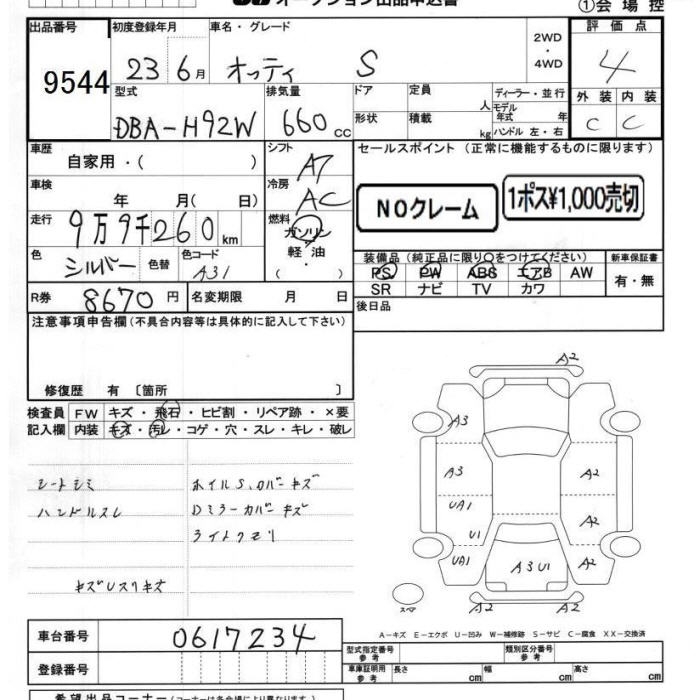 オークション出品申込書
①会場控
出品番号 初度登録年月 車名・グレード 評価点
9544 23 6月 オッティ S 2WD ・ 4WD 4
型式 排気量 ドア 定員 ディーラー・並行 外装 内装
DBA-H92W 660cc 形状 積載 人 kg モデル年式 年 ハンドル 左・右 C C
車歴 自家用・( ) シフト AT セールスポイント (正常に機能するものに限ります)
車検 年 月( 日) 冷房 AC NOクレーム 1ポス¥1,000売切
走行 9万9千260km 燃料 ガソリン 軽・油 ( )
色 シルバー 色替 色コード A31 装備品(純正品に限り○をつけてください) 新車保証書
PS PW ABS エアB AW 有・無
SR ナビ TV カワ
R券 8670円 名変期限 月 日 後日品
注意事項申告欄(不具合内容等は具体的に記入して下さい)
修復歴 有 〔箇所 〕
検査員 FW キズ・飛石・ヒビ割・リペア跡・×要
記入欄 内装 キズ・汚レ・コゲ・穴・スレ・キレ・破レ
シートシミ ホイルS,カバーキズ
ハンドルスレ Dミラーカバーキズ
ライトクモリ
キズUスリキズ
A2
A3
A3 A2
UA1 A2
U1
UA1 A3 U1 A2
スペア A2
A-キズ E-エクボ U-凹み W-補修跡 S-サビ C-腐食 XX-交換済
車台番号 0617234 型式指定番号 参考 類別区分番号 参考
登録番号 車庫証明用 参考 長さ cm 幅 cm 高さ cm
希望出品コーナー(コーナーは各会場により異なります)